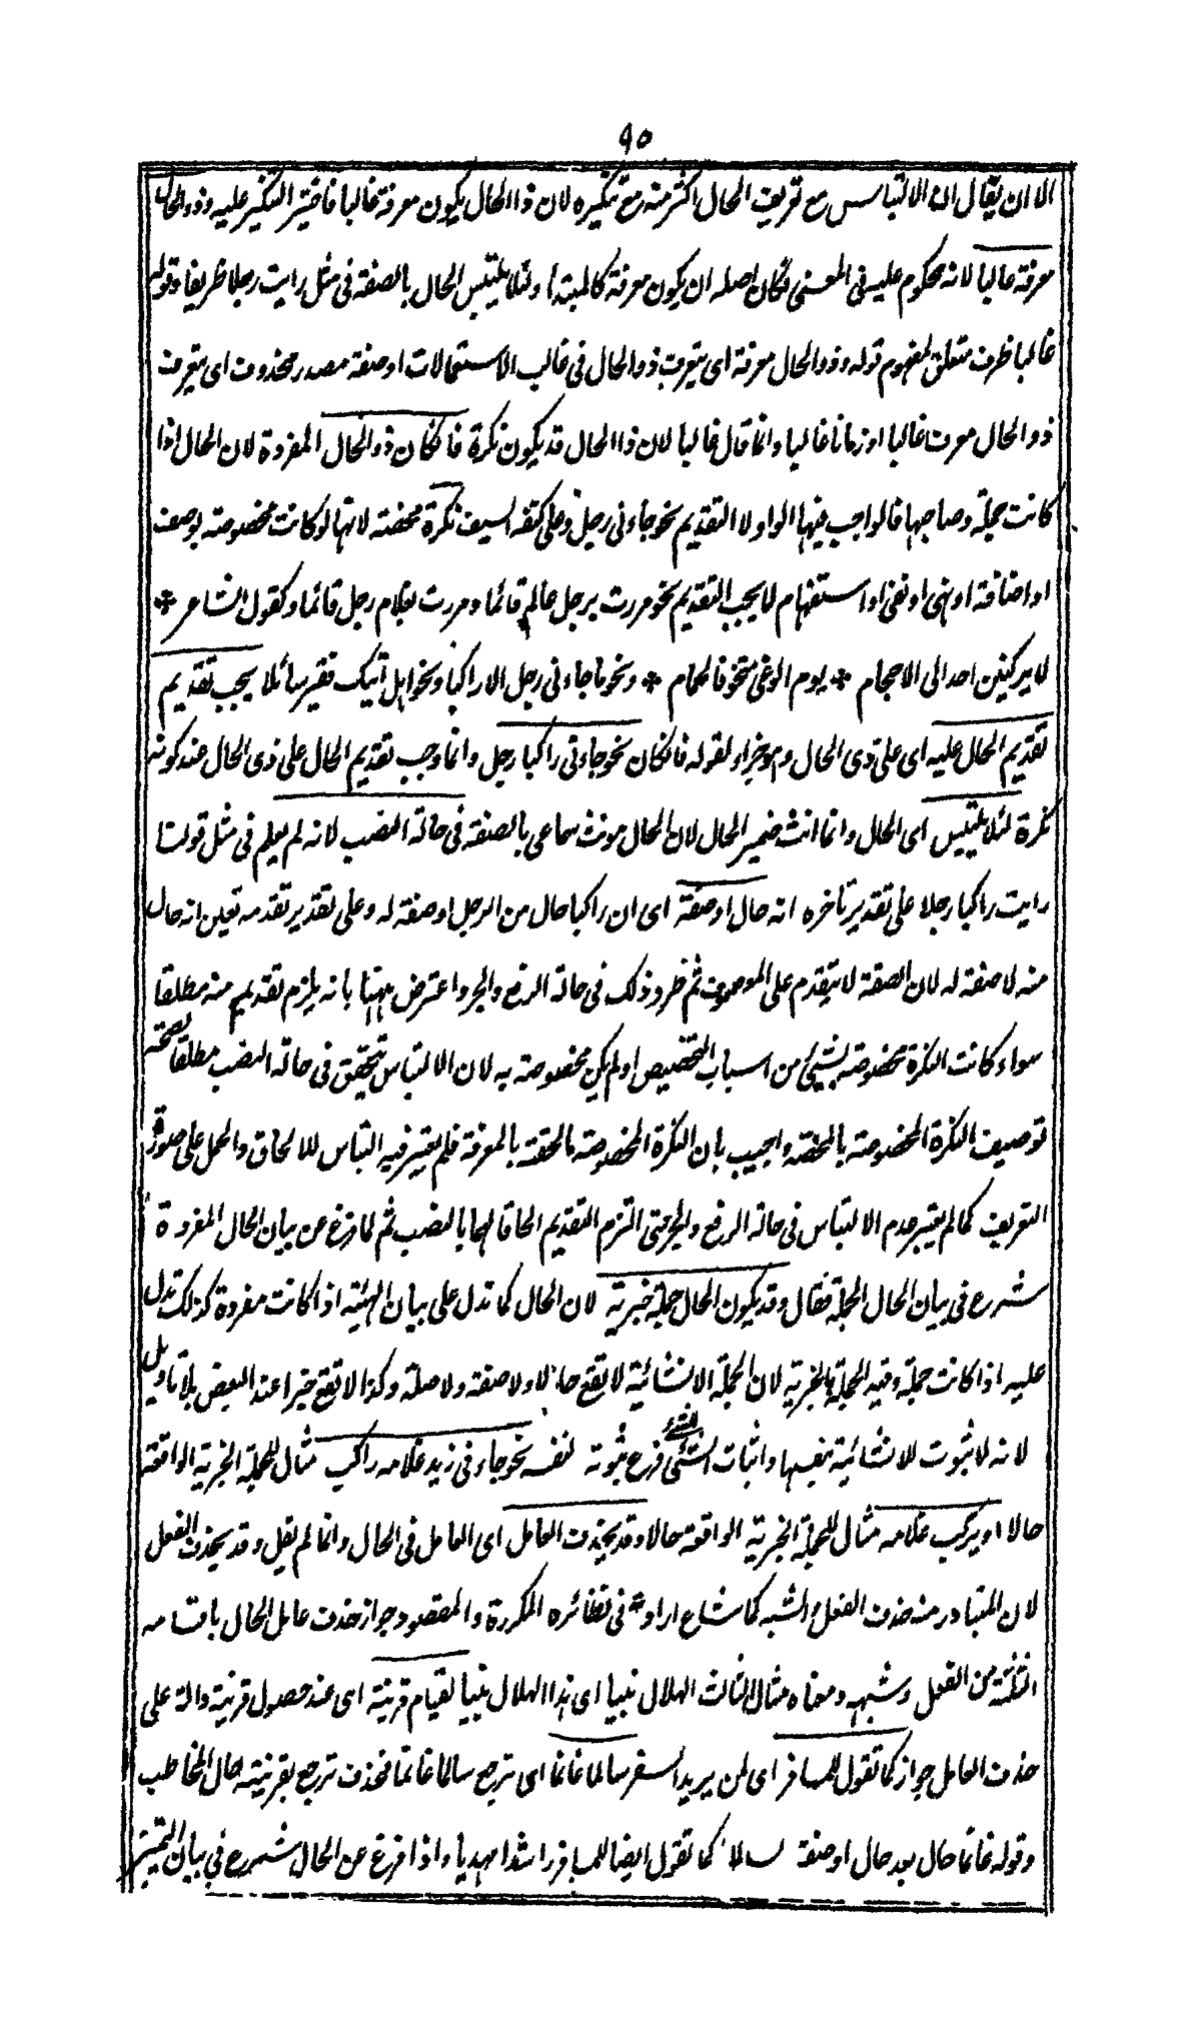 ٩٥
الا ان يقال ان الالتباس مع تعريف الحال اكثر منه مع تنكيره لان ذا الحال يكون معرفة غالبا فاختير التنكير عليه وذو الحال
معرفة غالبا لانه محكوم عليه فى المعنى فكان اصله ان يكون معرفة كالمبتدا ولئلا يلتبس الحال بالصفة فى مثل رايت رجلا ظريفا وقوله
غالبا ظرف متعلق لمفهوم قوله وذو الحال معرفة اى يتعرف ذو الحال فى غالب الاستعمالات او صفة مصدر محذوف اى يتعرف
ذو الحال معرف غالبا او زمانا غالبا وانما قال غالبا لان ذا الحال قد يكون نكرة فان كان ذو الحال المفردة لان الحال اذا
كانت جملة وصاحبها فالواجب فيها الواو لا التقديم نحو جاءنى رجل وعلى كتفه السيف نكرة محضة لانها لو كانت مخصوصة بوصف
او اضافة او نهى او نفى او استفهام لا يجب التقديم نحو مررت برجل عالم قائما ومررت بغلام رجل قائما وكقول الشاعر *
لا يركنن احد الى الاحجام * يوم الوغى متخوفا لحمام * ونحو ما جاءنى رجل الا راكبا ونحو هل اتيك فقير سائلا يجب تقديم
تقديم الحال عليه اى على ذى الحال وهو جزاء لقوله فان كان نحو جاءنى راكبا رجل وانما وجب تقديم الحال على ذى الحال عند كونه
نكرة لئلا يلتبس اى الحال وانما انث ضمير الحال لان الحال مونث سماعى بالصفة فى حالة النصب لانه لم يعلم فى مثل قولنا
رايت راكبا رجلا على تقدير تاخره انه حال او صفة اى ان راكبا حال من الرجل او صفة له وعلى تقدير تقدمه تعين انه حال
منه لا صفة له لان الصفة لا يتقدم على الموصوف ثم طرد ذلك فى حالة الرفع والجر واعترض ههنا بانه يلزم تقديمه منه مطلقا
سواء كانت النكرة مخصوصة بشيئ من اسباب التخصيص او لم يكن مخصوصة به لان الالتباس يتحقق فى حالة النصب مطلقا لصحة
توصيف النكرة المخصوصة بالمحضة واجيب بان النكرة المخصوصة ملحقة بالمعرفة فلم يعتبر فيه التباس للالحاق والحمل على صورة
التعريف كما لم يعتبر عدم الالتباس فى حالة الرفع والجر حتى التزم التقديم الحاقا لهما بالنصب ثم لما فرغ عن بيان الحال المفردة
شرع فى بيان الحال الجملة فقال وقد يكون الحال جملة خبرية لان الحال كما تدل على بيان الهيئة اذا كانت مفردة كذلك تدل
عليه اذا كانت جملة وقيد الجملة بالخبرية لان الجملة الانشائية لا تقع حالا ولا صفة ولا صلة وكذا لا تقع خبرا عند البعض بلا تاويل
لانه لا ثبوت للانشائية بنفسها واثبات الشئ للشئ فرع ثبوته لنفسه نحو جاءنى زيد غلامه راكب مثال للجملة الخبرية الواقعة
حالا او يركب غلامه مثال للجملة الخبرية الواقعة حالا وقد يحذف العامل اى العامل فى الحال وانما لم يقل وقد يحذف الفعل
لان المتبادر منه حذف الفعل الشبه كما شاع ارادته فى نظائره المكررة والمقصود جواز حذف عامل الحال باقسامه
الثلثة من الفعل وشبهه ومعناه مثال الثالث الهلال بينا اى هذا الهلال بينا لقيام قرينة اى عند حصول قرينة دالة على
حذف العامل جواز كما تقول للمسافر اى لمن يريد السفر سالما غانما اى ترجع سالما غانما فحذف ترجع بقرينة حال المخاطب
وقوله غانما حال بعد حال او صفة لسالما كما تقول ايضا للمسافر راشدا مهديا واذا فرغ عن الحال شرع فى بيان التميز